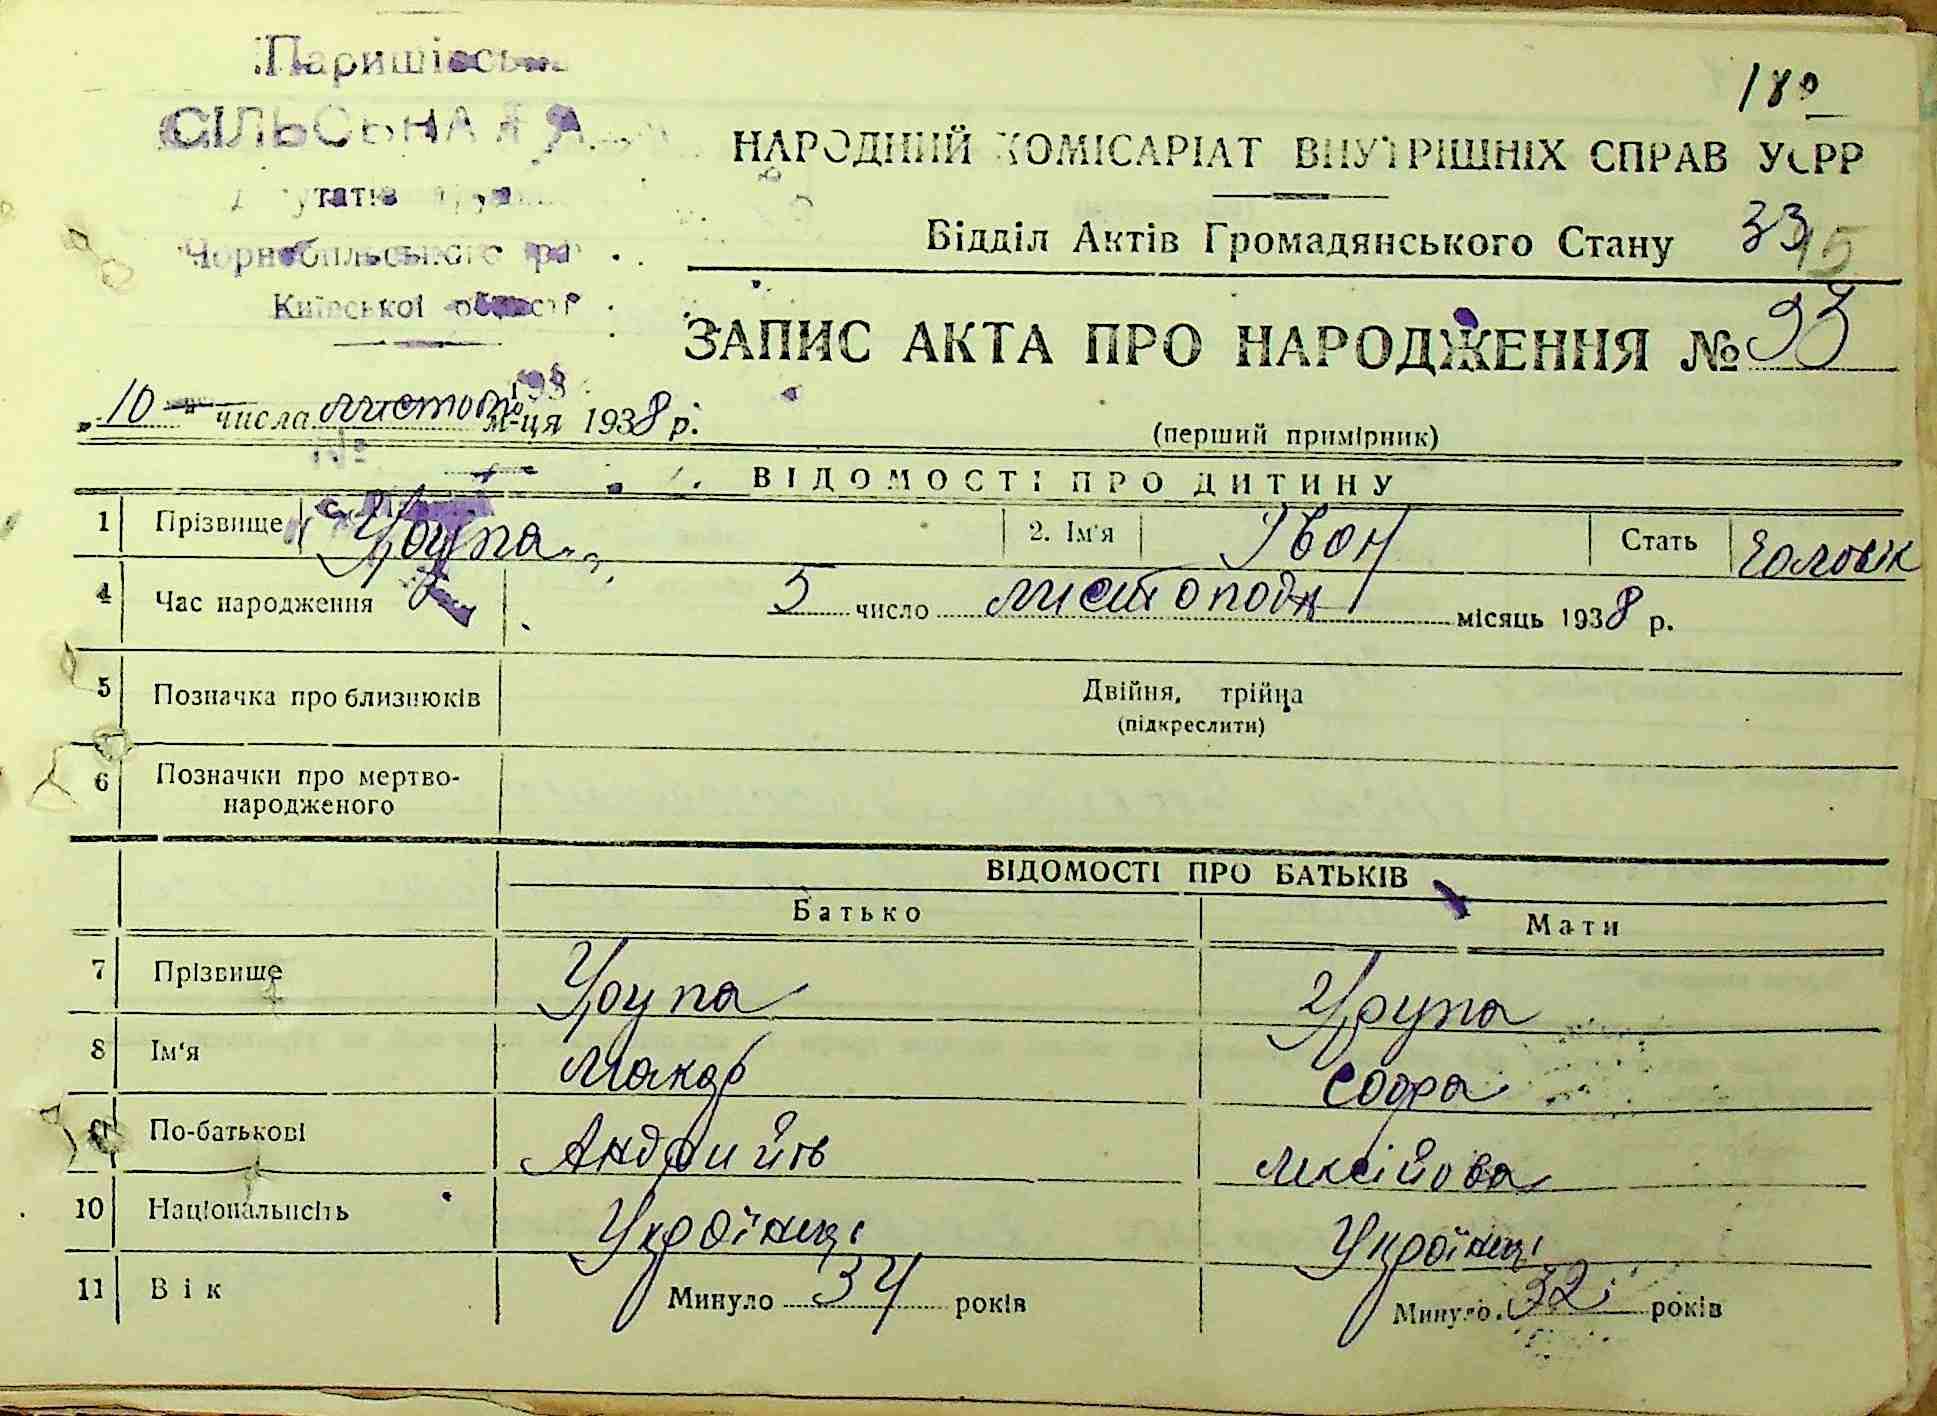 Паришівсь
180
СІЛЬСЬНА
НАРОДНИЙ КОМІСАРІАТ ВНУТРІШНІХ СПРАВ УСРР
Чорнобильського
Відділ Актів Громадянського Стану 33
Київської області
ЗАПИС АКТА ПРО НАРОДЖЕННЯ № 93
„10" числа листоп м-ця 1938 р.
(перший примірник)
ВІДОМОСТІ ПРО ДИТИНУ
1 Прізвище Цюупа 2. Ім'я Івон Стать Чоловік
4 Час народження 5 число листопода місяць 1938 р.
5 Позначка про близнюків Двійня, трійца
(підкреслити)
6 Позначки про мертво-
народженого
ВІДОМОСТІ ПРО БАТЬКІВ
Батько Мати
7 Прізвище
8 Ім'я Макар Софа
9 По-батькові Андрийов лексійова
10 Національність Українці Українці
11 Вік Минуло 34 років Минуло 32 років